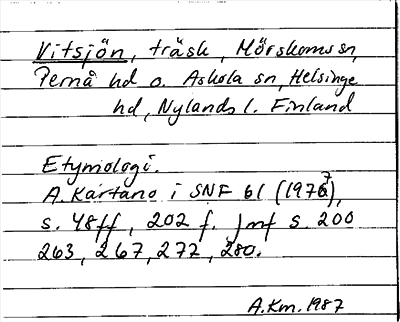 Vitsjön, träsk, Mörskoms sn,
Pernå hd o. Askola sn, Helsinge
hd, Nylands l. Finland
Etymologi.
A. Kartano i SNF 61 (1977),
s. 48ff, 202 f. Jmf s. 200
263, 267, 272, 280.
A.Km. 1987